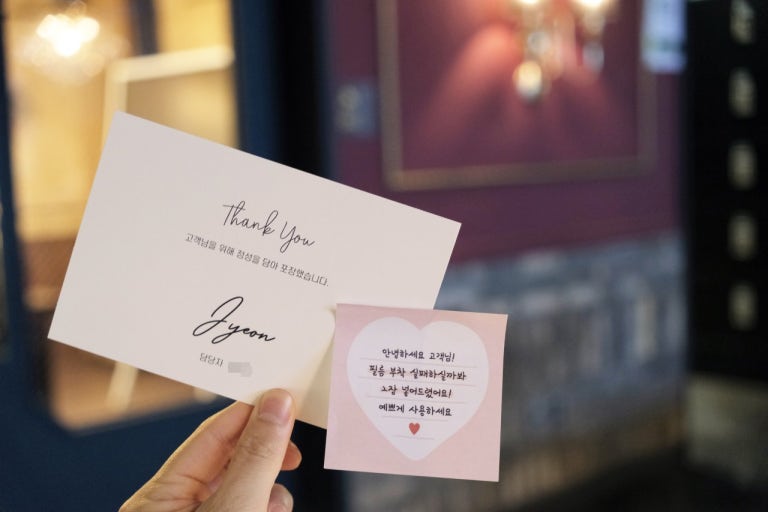 Thank You
고객님을 위해 정성을 담아 포장했습니다.
Jyeon
담당자
안녕하세요 고객님!
필름 부착 실패하실까봐
2장 넣어드렸어요!
예쁘게 사용하세요